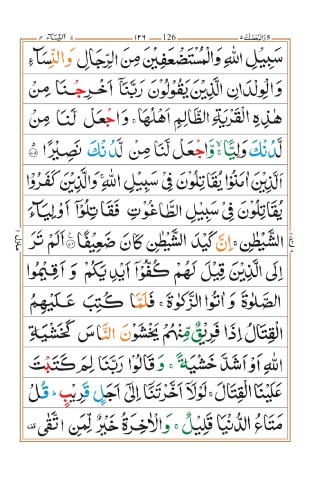 النسآء ٤ ١٢٦ 126 والمحصنت ٥
سَبِيْلِ اللّٰهِ وَالْمُسْتَضْعَفِيْنَ مِنَ الرِّجَالِ وَالنِّسَآءِ
وَالْوِلْدَانِ الَّذِيْنَ يَقُوْلُوْنَ رَبَّنَآ اَخْرِجْنَا مِنْ
هٰذِهِ الْقَرْيَةِ الظَّالِمِ اَهْلُهَا ۚ وَاجْعَلْ لَّنَا مِنْ
لَّدُنْكَ وَلِيًّا ۙ وَّاجْعَلْ لَّنَا مِنْ لَّدُنْكَ نَصِيْرًا ؕ
اَلَّذِيْنَ اٰمَنُوْا يُقَاتِلُوْنَ فِيْ سَبِيْلِ اللّٰهِ ۚ وَالَّذِيْنَ كَفَرُوْا
يُقَاتِلُوْنَ فِيْ سَبِيْلِ الطَّاغُوْتِ فَقَاتِلُوْٓا اَوْلِيَآءَ
الشَّيْطٰنِ ۚ اِنَّ كَيْدَ الشَّيْطٰنِ كَانَ ضَعِيْفًا اَلَمْ تَرَ
اِلَى الَّذِيْنَ قِيْلَ لَهُمْ كُفُّوْٓا اَيْدِيَكُمْ وَاَقِيْمُوا
الصَّلٰوةَ وَاٰتُوا الزَّكٰوةَ ۚ فَلَمَّا كُتِبَ عَلَيْهِمُ
الْقِتَالُ اِذَا فَرِيْقٌ مِّنْهُمْ يَخْشَوْنَ النَّاسَ كَخَشْيَةِ
اللّٰهِ اَوْ اَشَدَّ خَشْيَةً ۚ وَقَالُوْا رَبَّنَا لِمَ كَتَبْتَ
عَلَيْنَا الْقِتَالَ ۚ لَوْلَآ اَخَّرْتَنَآ اِلٰٓى اَجَلٍ قَرِيْبٍ ؕ قُلْ
مَتَاعُ الدُّنْيَا قَلِيْلٌ ۚ وَالْاٰخِرَةُ خَيْرٌ لِّمَنِ اتَّقٰى